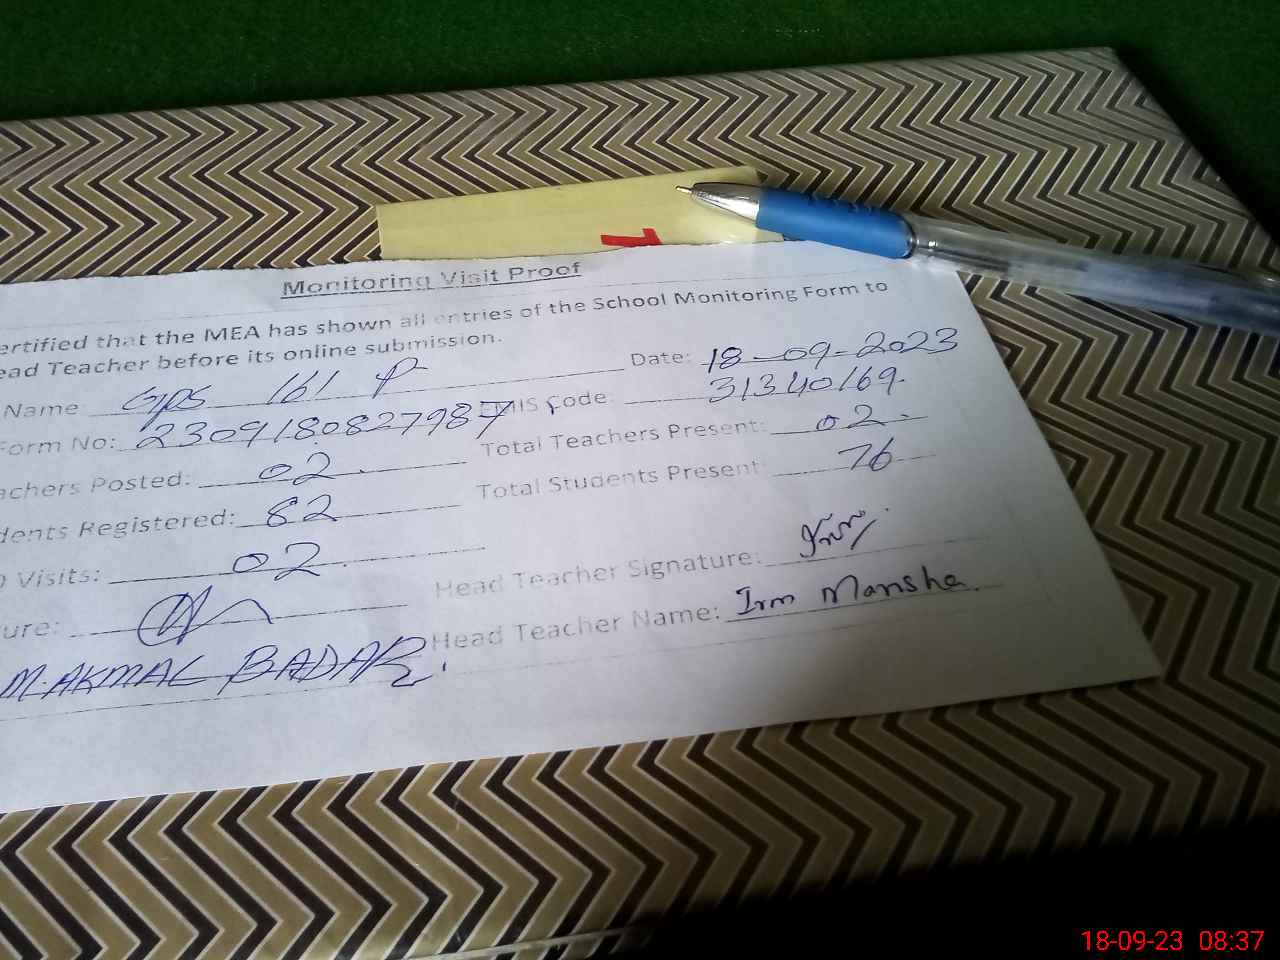 Monitoring Visit Proof
ertified that the MEA has shown all entries of the School Monitoring Form to
ead Teacher before its online submission.
Name GPS 161 P Date: 18-09-2023
Form No: 2309180827987 EMIS Code: 31340169.
achers Posted: 02. Total Teachers Present: 02.
dents Registered: 82 Total Students Present: 76
Visits: 02.
ure: Head Teacher Signature:
M.AKMAL BADAR. Head Teacher Name: Irm Mansha.
18-09-23 08:37